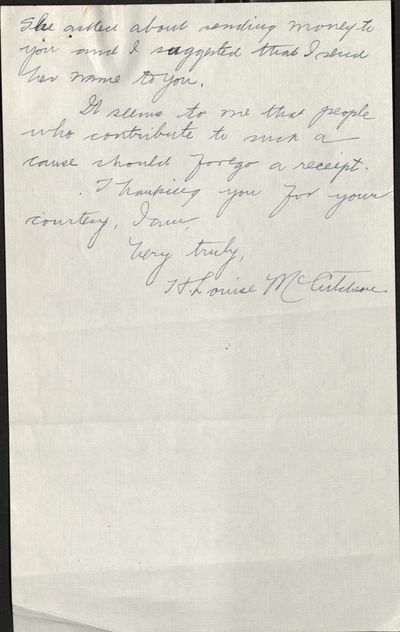 She asked about sending money to
you and I suggested that I send
her name to you.
It seems to me that people
who contribute to such a
cause should forego a receipt.
Thanking you for your
courtesy, I am,
Very truly,
H. Louise McCutcheon